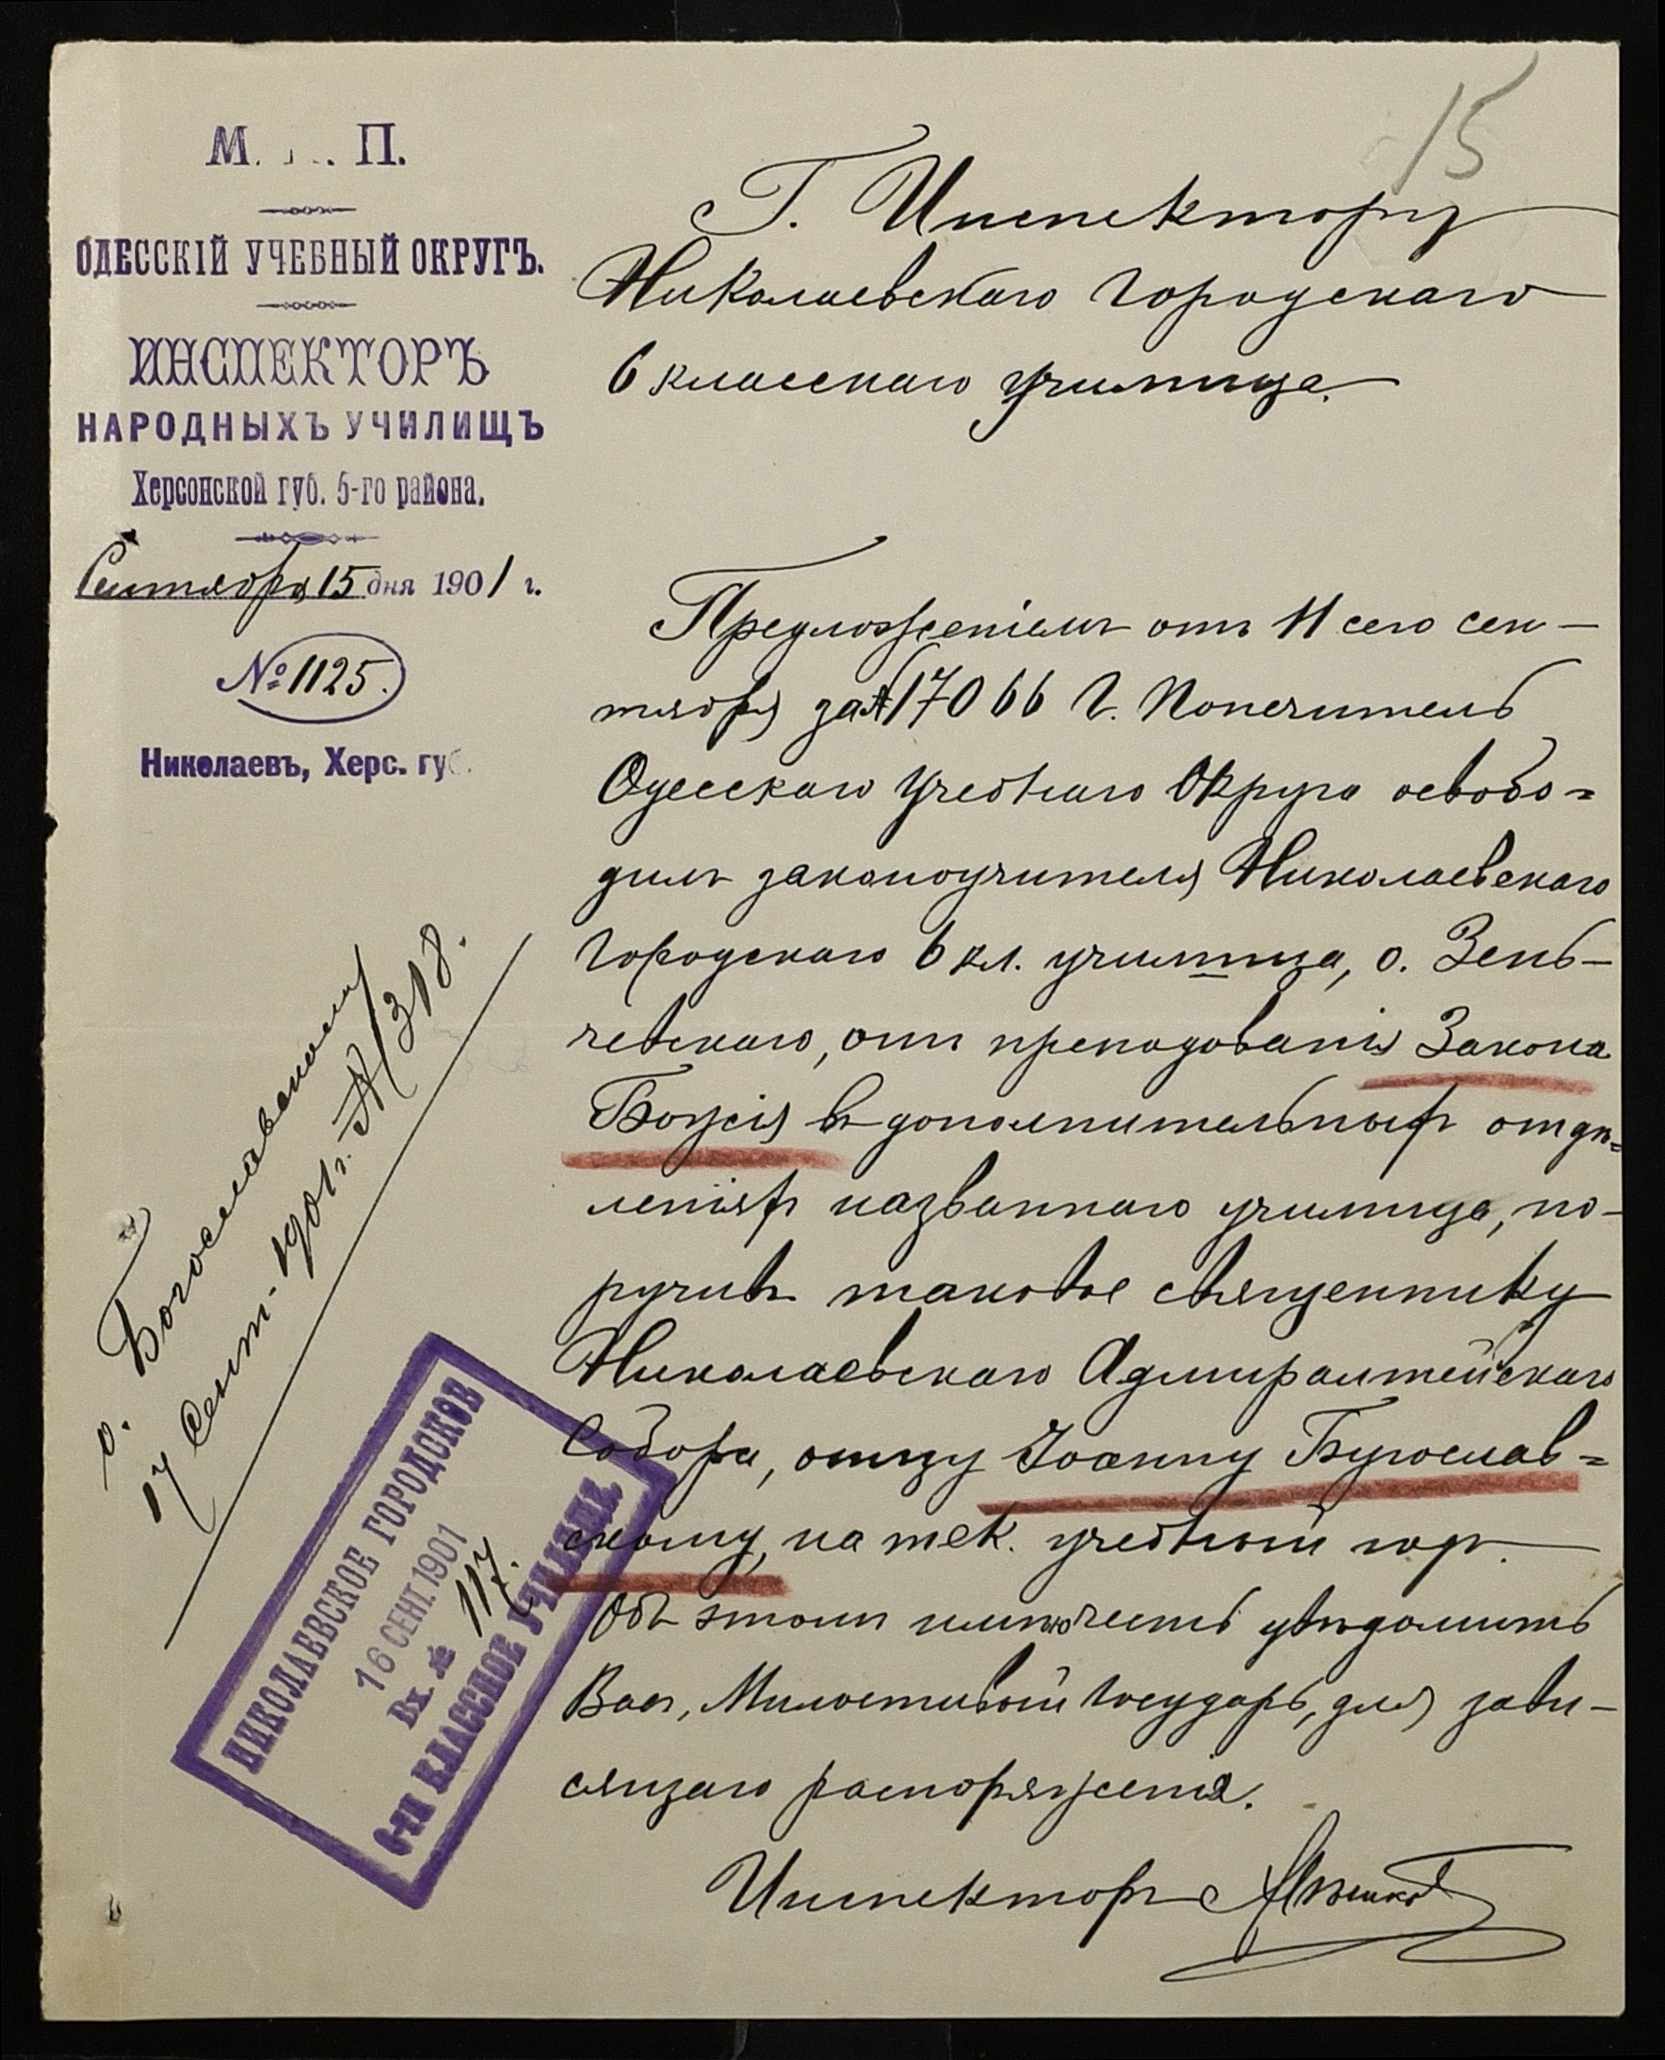 15
М. П.
ОДЕССКІЙ УЧЕБНЫЙ ОКРУГЪ.
ИНСПЕКТОРЪ
НАРОДНЫХЪ УЧИЛИЩЪ
Херсонской губ. 5-го района.
Сентября 15 дня 1901 г.
№ 1125.
Николаевъ, Херс. губ.
Г. Инспектору
Николаевскаго Городскаго
6 класснаго училища.
Предложеніемъ отъ 11 сего сен-
тября за № 17066 Г. Попечитель
Одесскаго Учебнаго Округа освобо-
дилъ законоучителя Николаевскаго
Городскаго 6 кл. училища, о. Зень-
чевскаго, отъ преподованія Закона
Божія въ дополнительныхъ отдѣ-
леніяхъ названнаго училища, по-
ручивъ таковое священнику
Николаевскаго Адмиралтейскаго
Собора, отцу Іоанну Бугослав-
скому, на тек. учебный годъ.
Объ этомъ имѣю честь увѣдомить
Васъ, Милостивый Государь, для зави-
сящаго распоряженія.
Инспекторъ
о. Богославскому
17 Сент. 1901 г. № 318.
НИКОЛАЕВСКОЕ ГОРОДСКОЕ
16 СЕНТ. 1901
Вх. № 117.
6-ТИ КЛАССНОЕ УЧИЛИЩЕ